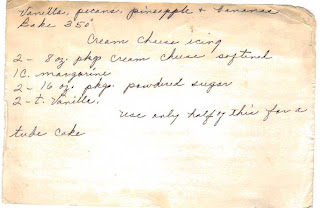 Vanilla, pecans, pineapple & bananas
Bake 350°
Cream Cheese icing
2 - 8 oz. pkg cream cheese softened
1 C. margarine
2 - 16 oz. pkgs. powdered sugar
2 - t. Vanilla.
Use only half of this for a
tude cake